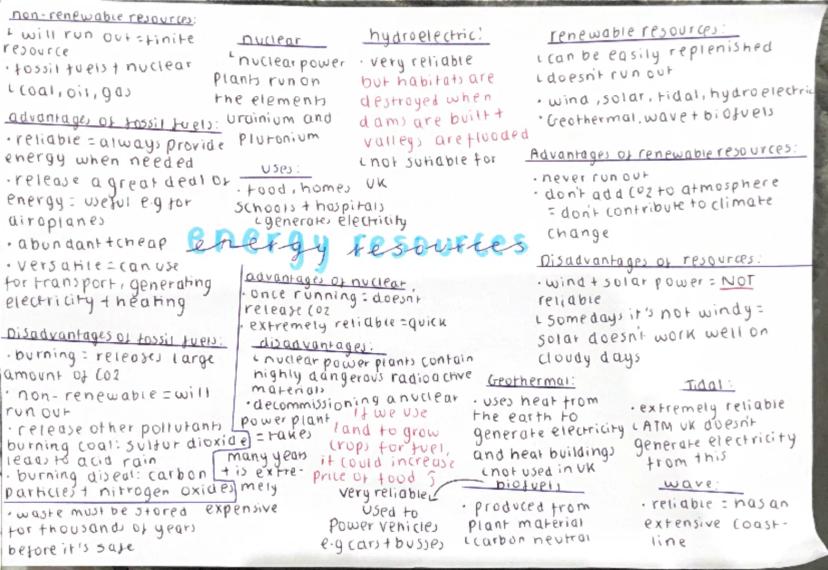 non-renewable resources:
↳ will run out = finite
resource
• fossil fuels + nuclear
↳ coal, oil, gas
advantages of fossil fuels:
• reliable = always provide
energy when needed
• release a great deal of
energy = useful e.g for
airoplanes
• abundant + cheap
• versatile = can use
for transport, generating
electricity + heating
Disadvantages of fossil fuels:
• burning = releases large
amount of CO2
• non-renewable = will
run out
• release other pollutants
burning coal: sulfur dioxide
leads to acid rain
• burning diseal: carbon
particles + nitrogen oxides
• waste must be stored
for thousands of years
before it's safe
nuclear
↳ nuclear power
plants run on
the elements
urainium and
plutonium
uses:
• food, homes
schools + hospitals
↳ generates electricity
hydroelectric:
• very reliable
but habitats are
destroyed when
dams are built +
valleys are flooded
↳ not sutiable for
UK
energy resources
advantages of nuclear
• once running = doesn't
release CO2
• extremely reliable = quick
disadvantages:
↳ nuclear power plants contain
highly dangerous radioactive
materials
• decommissioning a nuclear
power plant
= takes
many years
+ is extre-
mely
expensive
if we use
land to grow
crops for fuel,
it could increase
price of food
very reliable
used to
power vehicles
e.g cars + busses
renewable resources:
↳ can be easily replenished
↳ doesn't run out
• wind, solar, tidal, hydroelectric
• Geothermal, wave + biofuels
Advantages of renewable resources:
• never run out
• don't add CO2 to atmosphere
= don't contribute to climate
change
Disadvantages of resources:
• wind + solar power = NOT
reliable
↳ some days it's not windy =
solar doesn't work well on
cloudy days
Geothermal:
• uses heat from
the earth to
generate electricity
and heat buildings
↳ not used in UK
biofuels
• produced from
plant material
↳ carbon neutral
Tidal:
• extremely reliable
↳ ATM UK doesn't
generate electricity
from this
wave:
• reliable = has an
extensive coast-
line